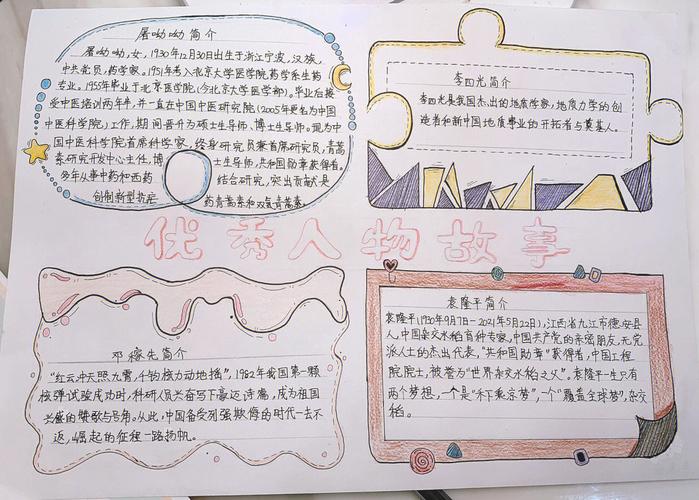 屠呦呦简介
屠呦呦,女,1930年12月30日出生于浙江宁波,汉族,
中共党员,药学家。1951年考入北京大学医学院药学系生药
专业。1955年毕业于北京医学院(今北京大学医学部)。毕业后接
受中医培训两年半,并一直在中国中医研究院(2005年更名为中国
中医科学院)工作,期间晋升为硕士生导师、博士生导师。现为中
国中医科学院首席科学家,终身研究员兼首席研究员,青蒿
素研究开发中心主任,博士生导师,共和国勋章获得者。
多年从事中药和西药结合研究,突出贡献是
创制新型抗疟药青蒿素和双氢青蒿素
李四光简介
李四光是我国杰出的地质学家,地质力学的创
造者和新中国地质事业的开拓者与奠基人。
优秀人物故事
邓稼先简介
“红云冲天照九霄,千钧核力动地摇”,1982年我国第一颗
核弹试验成功时,科研人员兴奋写下豪迈诗篇,成为祖国
兴盛的赞歌与号角。从此,中国备受列强欺侮的时代一去不
返,崛起的征程一路扬帆。
袁隆平简介
袁隆平(1930年9月7日-2021年5月22日),江西省九江市德安县
人,中国杂交水稻育种专家,中国共产党的亲密朋友,无党
派人士的杰出代表,“共和国勋章”获得者,中国工程
院院士,被誉为“世界杂交水稻之父”。袁隆平一生只有
两个梦想,一个是“禾下乘凉梦”,一个“覆盖全球梦”,杂交
稻。